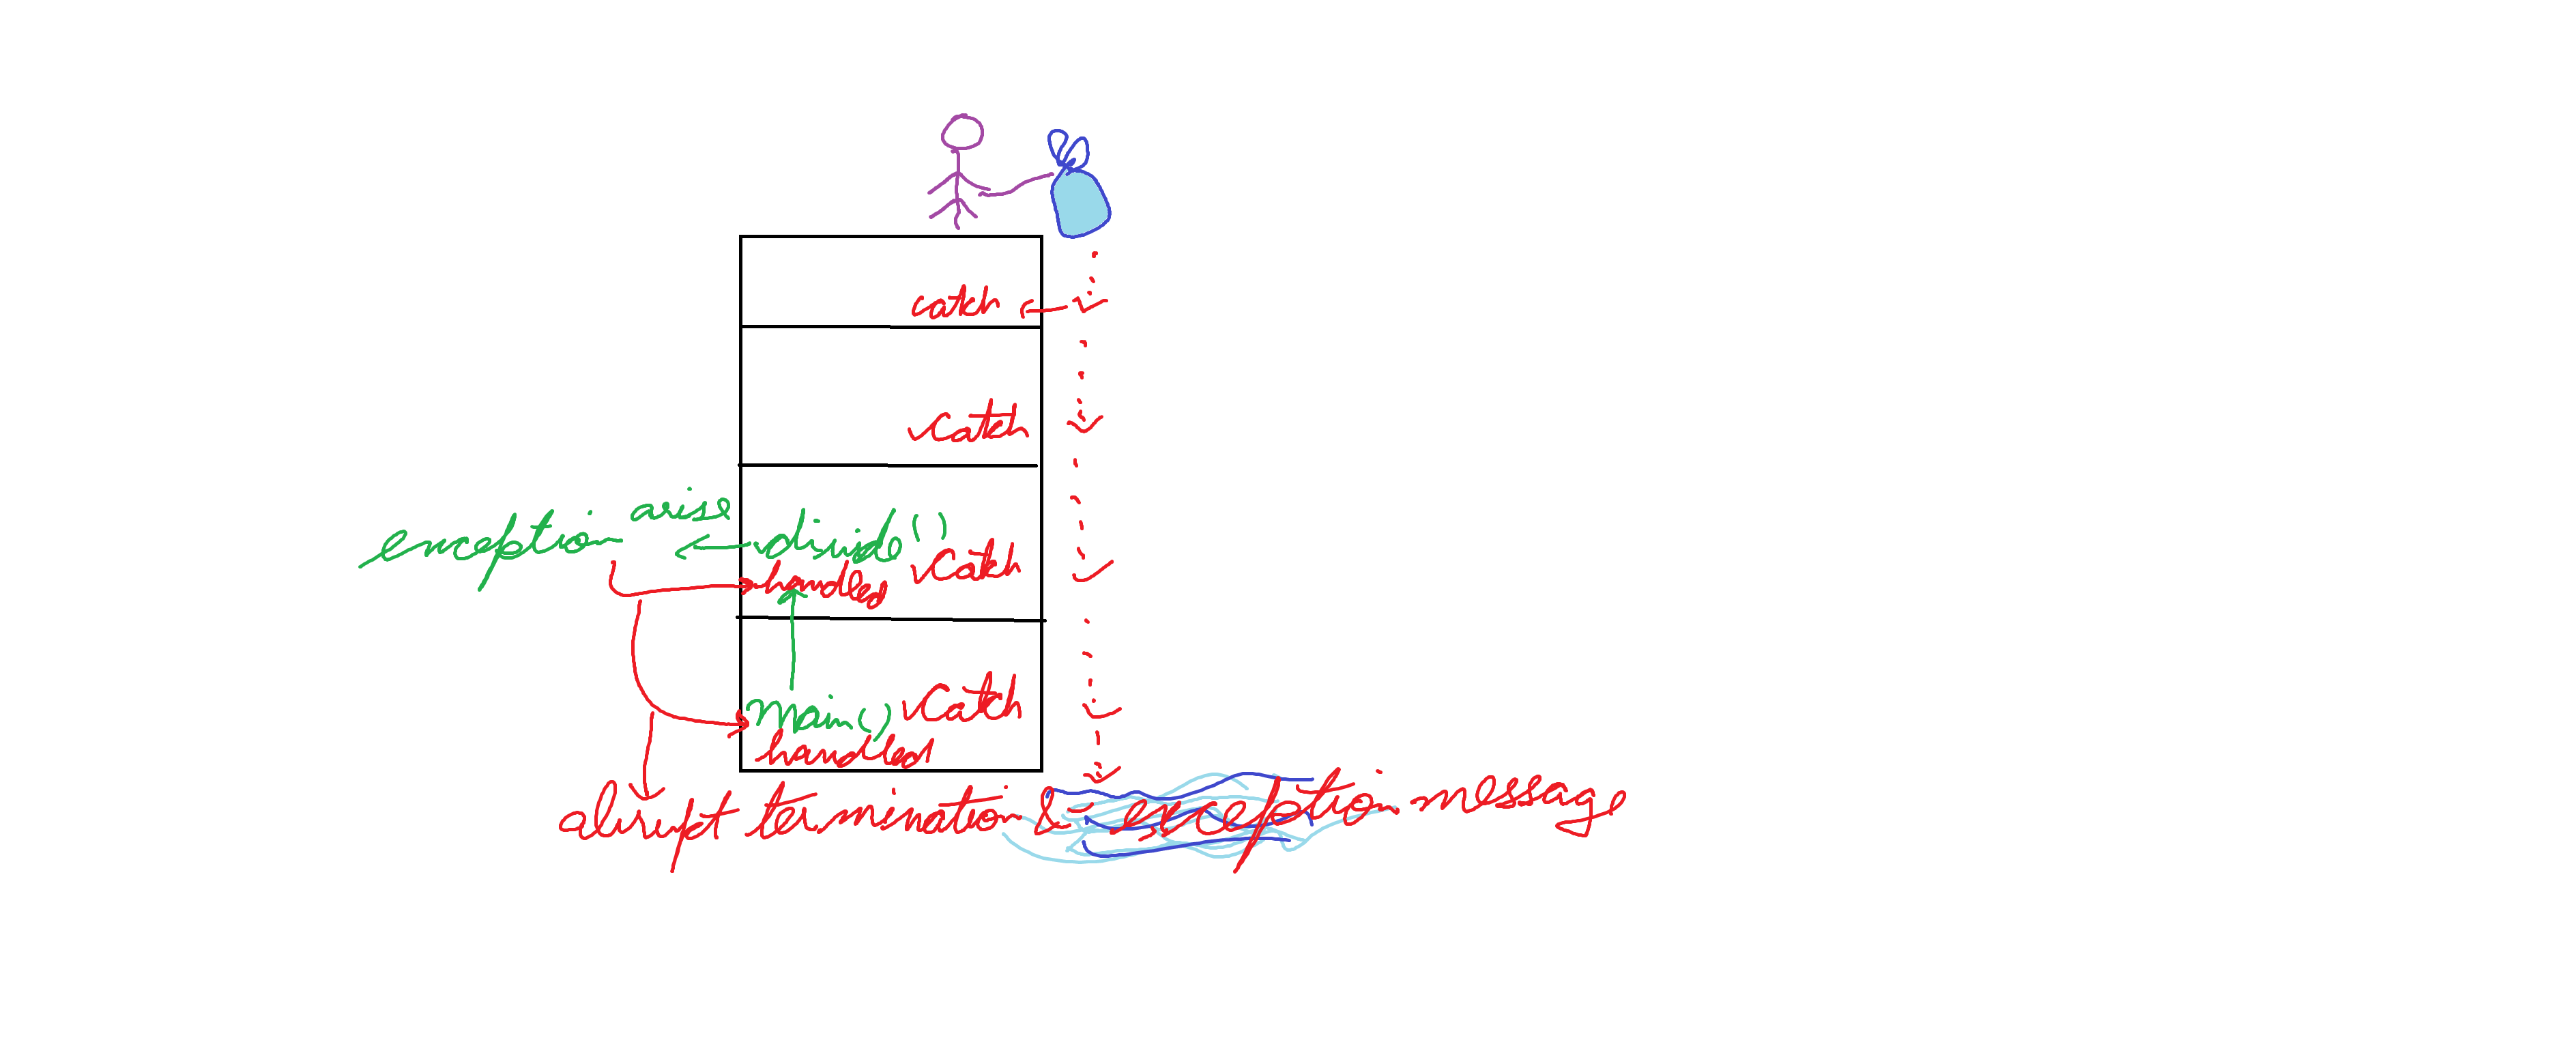 catch
catch
exception arise divide() catch
handled
main() catch
handled
abrupt termination & exception message